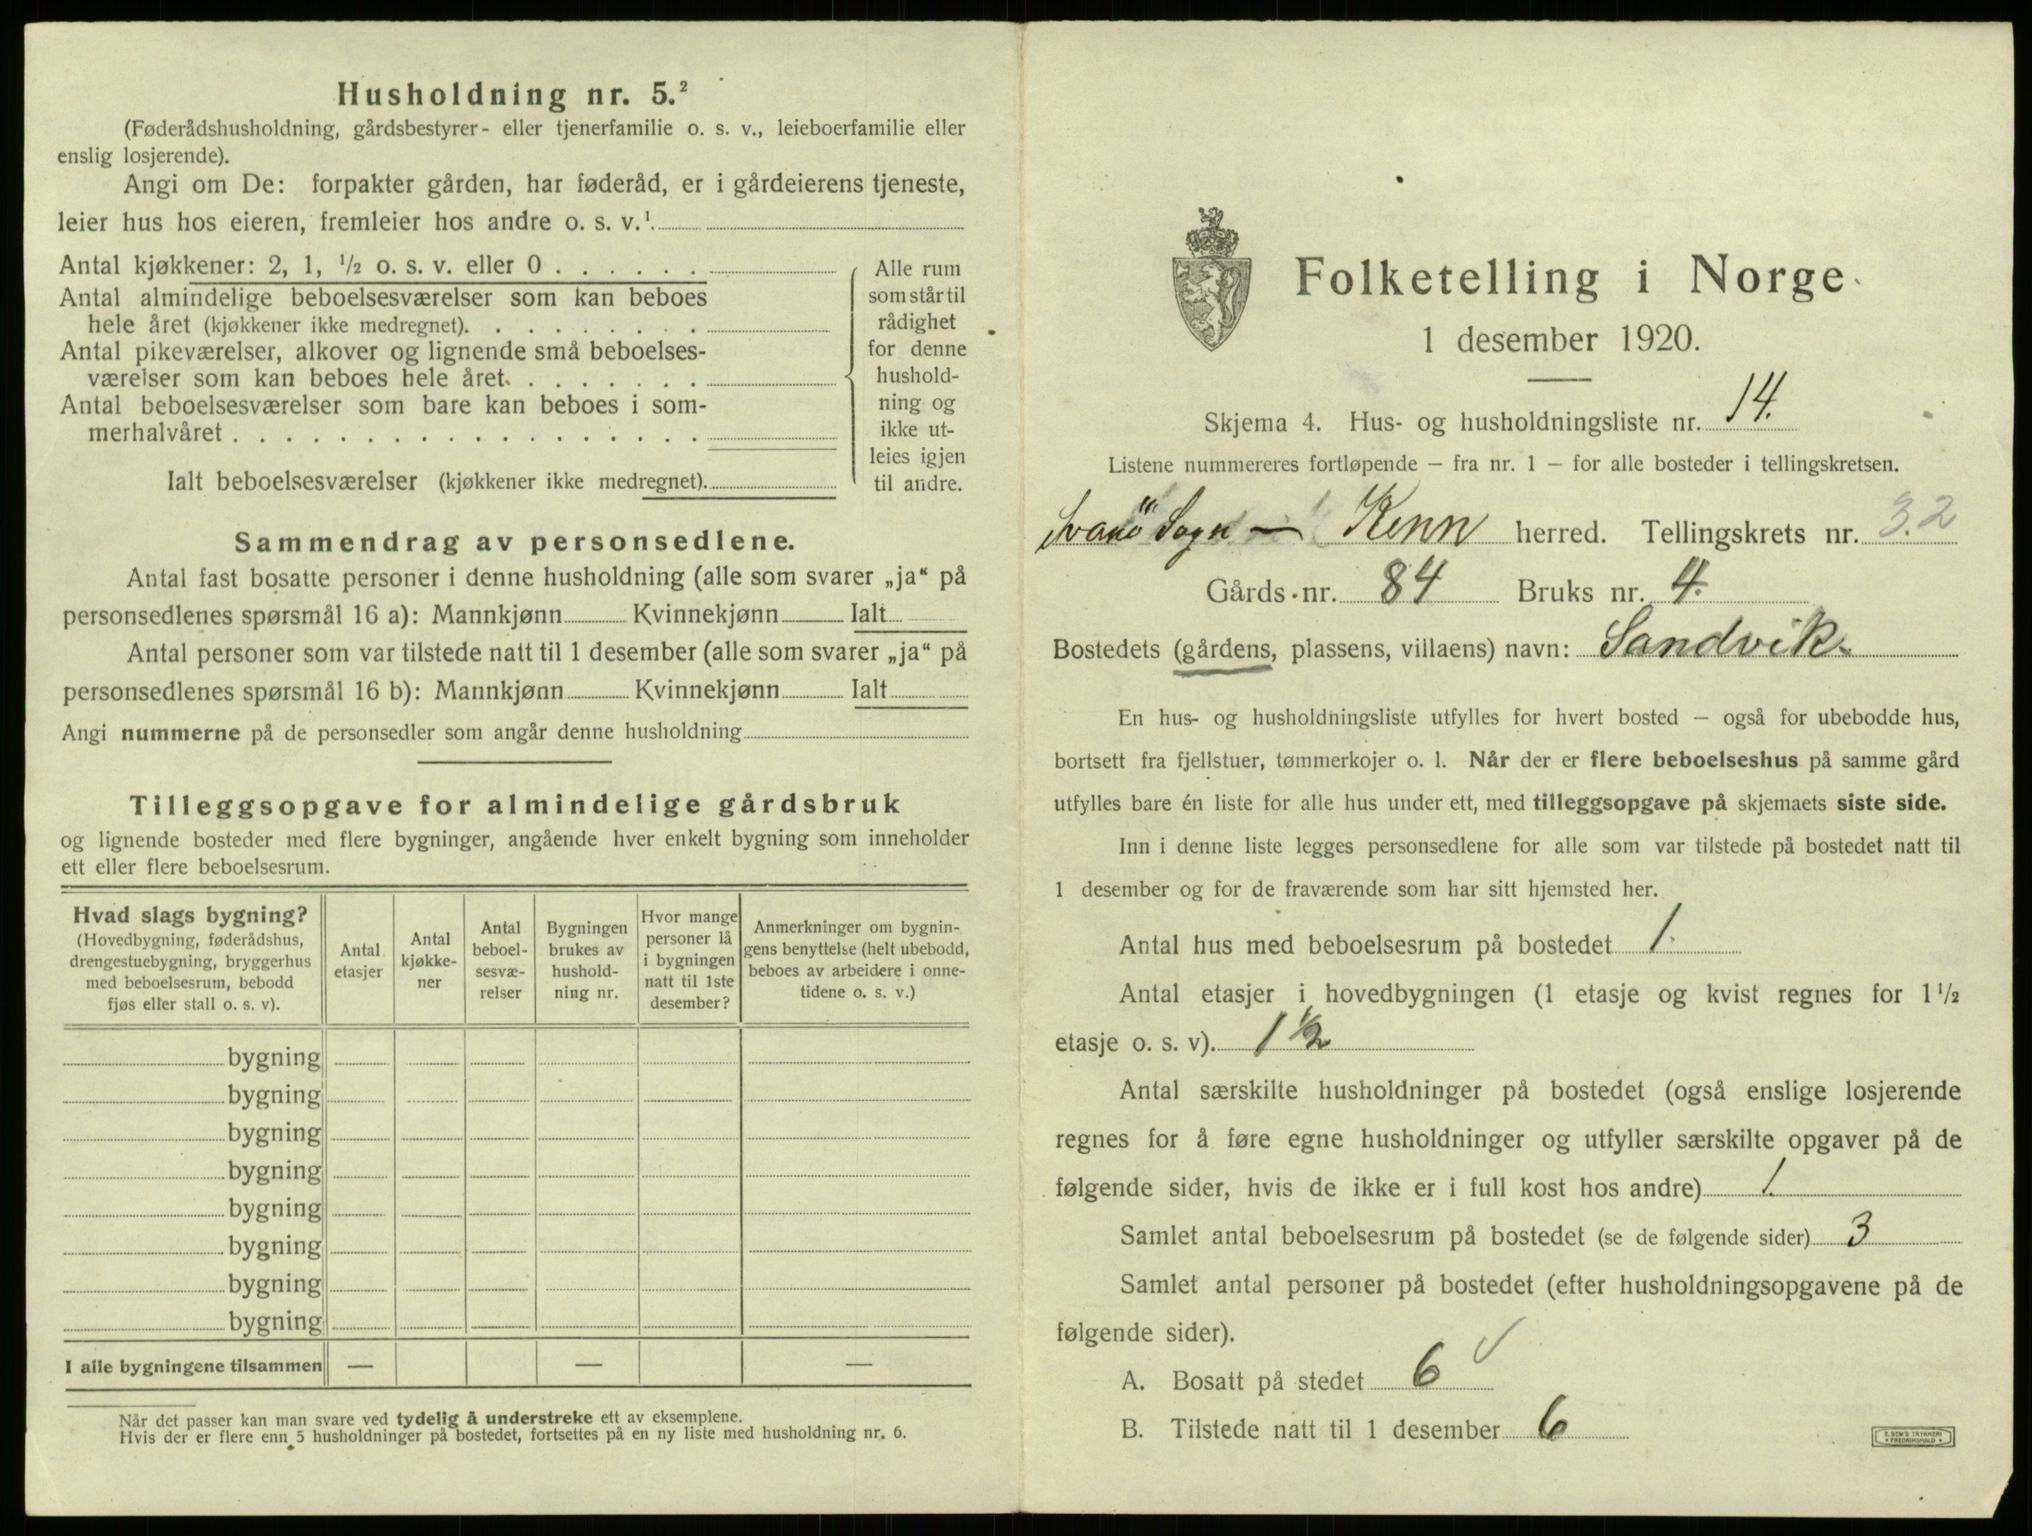 Husholdning nr. 5.²
(Føderådshusholdning, gårdsbestyrer- eller tjenerfamilie o. s. v., leieboerfamilie eller
enslig losjerende).
Angi om De: forpakter gården, har føderåd, er i gårdeierens tjeneste,
leier hus hos eieren, fremleier hos andre o. s. v.¹
Antal kjøkkener: 2, 1, ½ o. s. v. eller 0 . . . . . .
Antal almindelige beboelsesværelser som kan beboes
hele året (kjøkkener ikke medregnet). . . . . . . . .
Antal pikeværelser, alkover og lignende små beboelses-
værelser som kan beboes hele året. . . . . . . .
Antal beboelsesværelser som bare kan beboes i som-
merhalvåret . . . . . . . . . . . . . . . . . .
Ialt beboelsesværelser (kjøkkener ikke medregnet).
Alle rum
som står til
rådighet
for denne
hushold-
ning og
ikke ut-
leies igjen
til andre.
Sammendrag av personsedlene.
Antal fast bosatte personer i denne husholdning (alle som svarer „ja“ på
personsedlenes spørsmål 16 a): Mannkjønn Kvinnekjønn Ialt
Antal personer som var tilstede natt til 1 desember (alle som svarer „ja“ på
personsedlenes spørsmål 16 b): Mannkjønn Kvinnekjønn Ialt
Angi nummerne på de personsedler som angår denne husholdning
Tilleggsopgave for almindelige gårdsbruk
og lignende bosteder med flere bygninger, angående hver enkelt bygning som inneholder
ett eller flere beboelsesrum.
Hvad slags bygning?
(Hovedbygning, føderådshus,
drengestuebygning, bryggerhus
med beboelsesrum, bebodd
fjøs eller stall o. s. v).
Antal
etasjer
Antal
kjøkke-
ner
Antal
beboel-
sesvæ-
relser
Bygningen
brukes av
hushold-
ning nr.
Hvor mange
personer lå
i bygningen
natt til 1ste
desember?
Anmerkninger om bygnin-
gens benyttelse (helt ubebodd,
beboes av arbeidere i onne-
tidene o. s. v.)
bygning
bygning
bygning
bygning
bygning
bygning
bygning
bygning
I alle bygningene tilsammen — — —
Når det passer kan man svare ved tydelig å understreke ett av eksemplene.
Hvis der er flere enn 5 husholdninger på bostedet, fortsettes på en ny liste med husholdning nr. 6.
Folketelling i Norge
1 desember 1920.
Skjema 4. Hus- og husholdningsliste nr. 14.
Listene nummereres fortløpende – fra nr. 1 – for alle bosteder i tellingskretsen.
Svanö Sogn — Kinn herred. Tellingskrets nr. 3.2
Gårds-nr. 84 Bruks nr. 4.
Bostedets (gårdens, plassens, villaens) navn: Sandvik.
En hus- og husholdningsliste utfylles for hvert bosted – også for ubebodde hus,
bortsett fra fjellstuer, tømmerkojer o. l. Når der er flere beboelseshus på samme gård
utfylles bare én liste for alle hus under ett, med tilleggsopgave på skjemaets siste side.
Inn i denne liste legges personsedlene for alle som var tilstede på bostedet natt til
1 desember og for de fraværende som har sitt hjemsted her.
Antal hus med beboelsesrum på bostedet 1.
Antal etasjer i hovedbygningen (1 etasje og kvist regnes for 1½
etasje o. s. v). 1½
Antal særskilte husholdninger på bostedet (også enslige losjerende
regnes for å føre egne husholdninger og utfyller særskilte opgaver på de
følgende sider, hvis de ikke er i full kost hos andre) 1.
Samlet antal beboelsesrum på bostedet (se de følgende sider) 3
Samlet antal personer på bostedet (efter husholdningsopgavene på de
følgende sider).
A. Bosatt på stedet 6 ✓
B. Tilstede natt til 1 desember 6
E. SEM'S TRYKKERI
• FREDRIKSHALD •